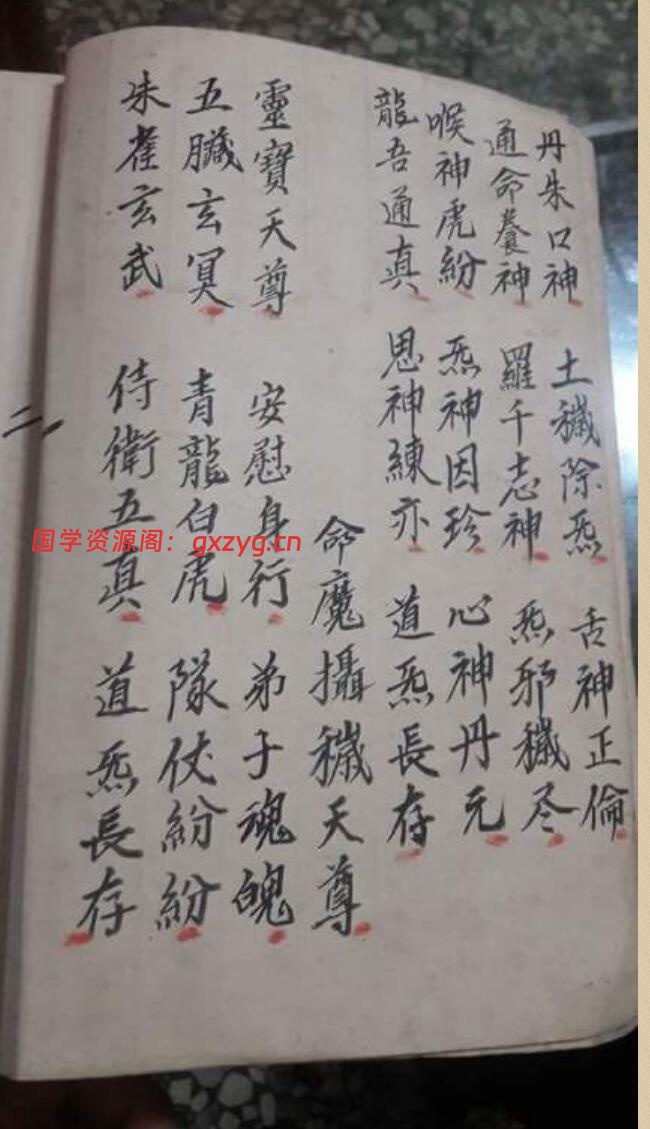 丹朱口神 土穢除炁 舌神正倫
通命養神 羅千志神 炁邪穢尽
喉神虎紛 炁神因珍 心神丹元
龍吾通真 思神練亦 道炁長存
命魔攝穢天尊
靈寶天尊 安慰身行 弟子魂魄
五臟玄冥 青龍白虎 隊仗紛紛
朱雀玄武 侍衛五真 道炁長存
二
国学资源阁:gxzyg.cn